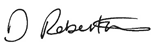 D Roberts